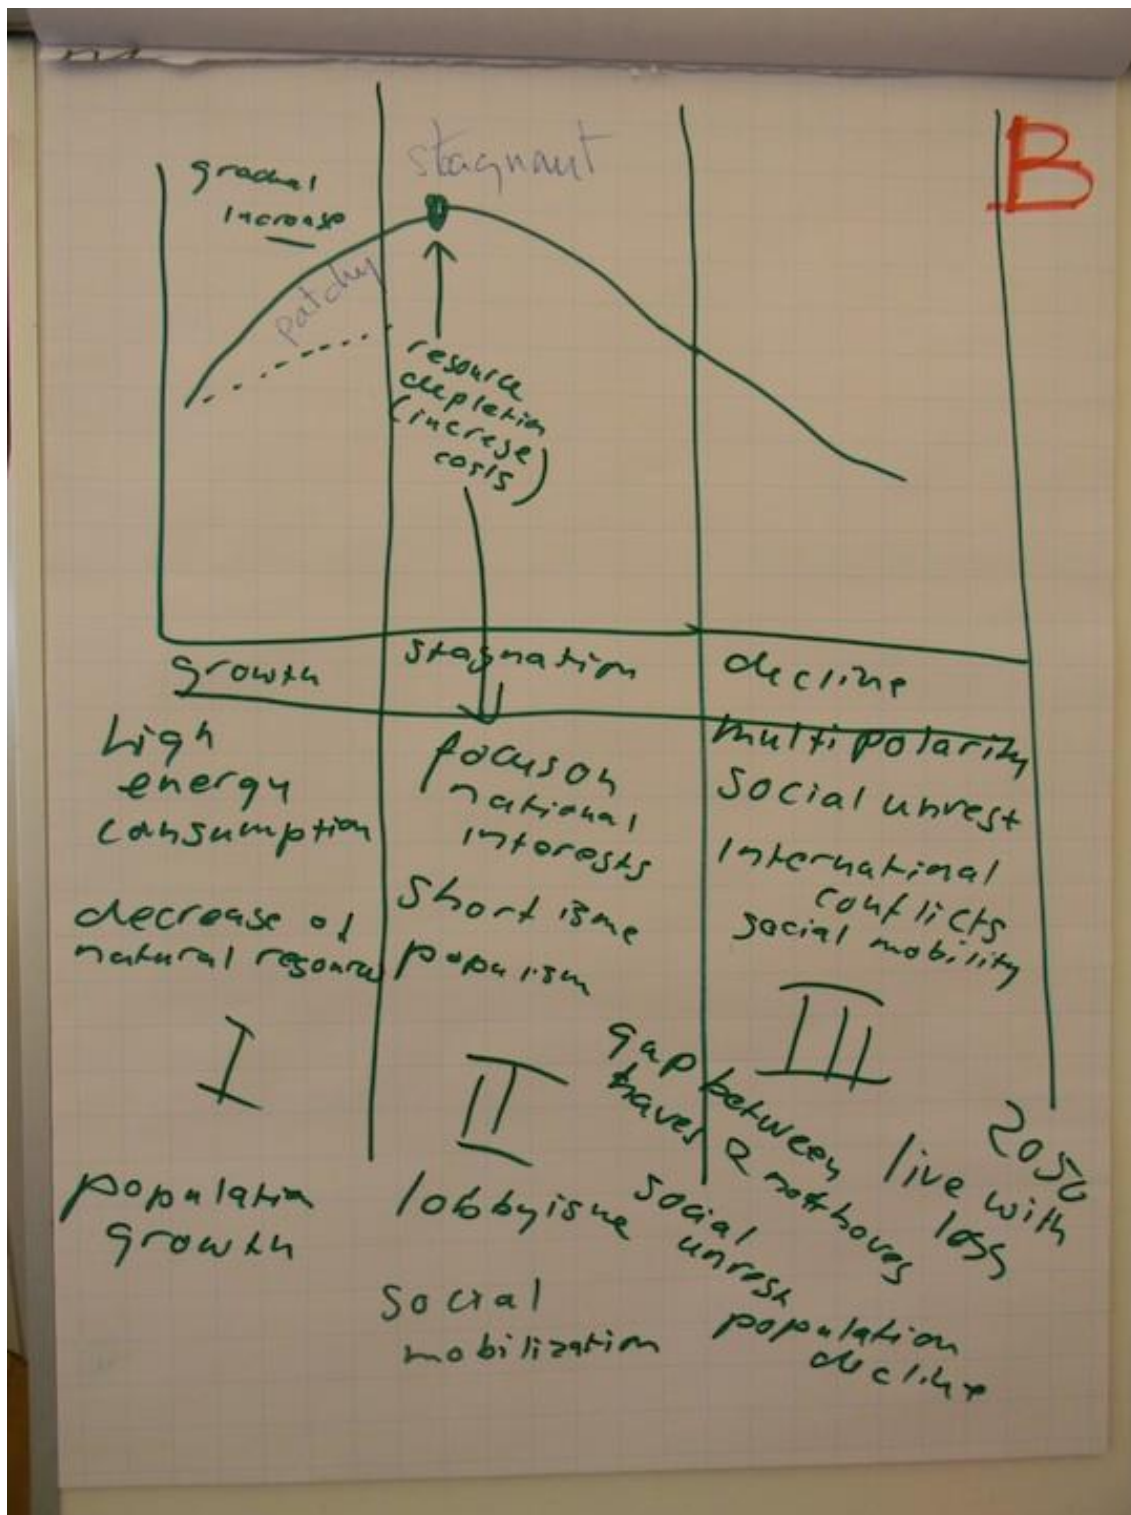 B
stagnant
gradual
increase
patchy
resource
depletion
(increse
costs)
growth
stagnation
decline
high
energy
consumption
decrease of
natural resource
I
population
growth
focus on
national
interests
short isme
populism
II
lobbyisme
social
mobilization
multipolarity
social unrest
International
conflicts
social mobility
III
gap between
haves & nothaves
social
unrest
2050
live with
loss
population
decline